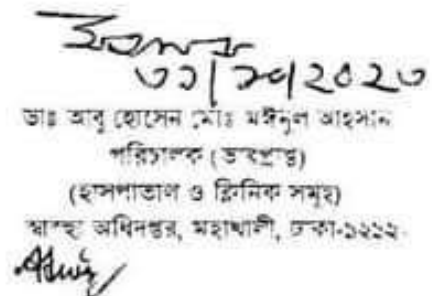 ৩১/১০/২০২৩
ডাঃ আবু হোসেন মোঃ মঈনুল আহসান
পরিচালক (ভারপ্রাপ্ত)
(হাসপাতাল ও ক্লিনিক সমূহ)
স্বাস্থ্য অধিদপ্তর, মহাখালী, ঢাকা-১২১২